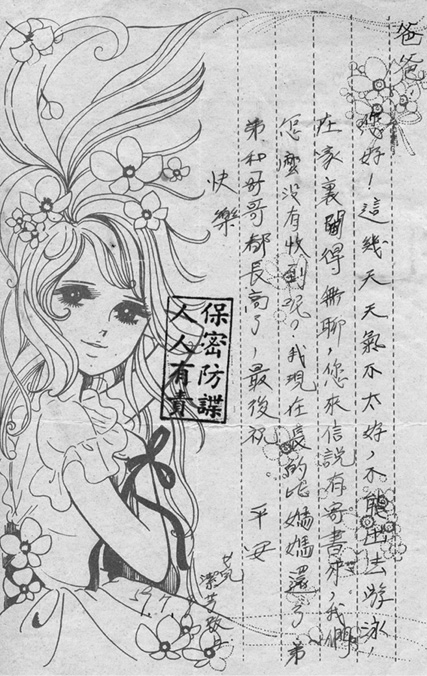 爸爸
您好！這幾天天氣不太好，不能出去游泳，
在家裏悶得無聊，您來信說有寄書來，我們
怎麼沒有收到呢。我現在長的比媽媽還 弟
弟和哥哥都長高了，最後祝。 平安
快樂
保密防諜
人人有責
潔芳敬上